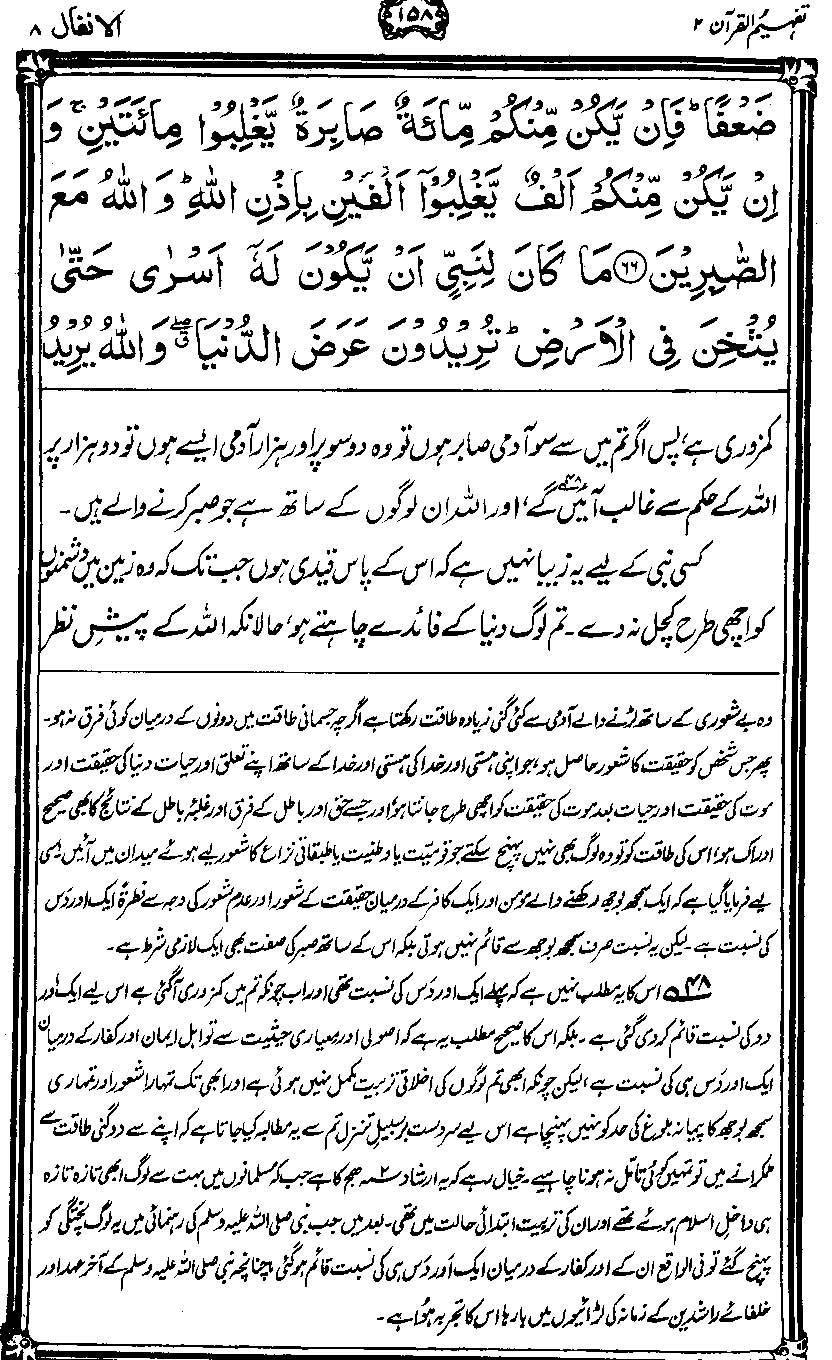 تفہیم القرآن ۲
۱۵۸
الانفال ۸
ضَعْفًا ؕ فَاِنْ يَّكُنْ مِّنْكُمْ مِّائَةٌ صَابِرَةٌ يَّغْلِبُوْا مِائَتَيْنِ ۚ وَ
اِنْ يَّكُنْ مِّنْكُمْ اَلْفٌ يَّغْلِبُوْۤا اَلْفَيْنِ بِاِذْنِ اللّٰهِ ؕ وَ اللّٰهُ مَعَ
الصّٰبِرِيْنَ ﴿۶۶﴾ مَا كَانَ لِنَبِيٍّ اَنْ يَّكُوْنَ لَهٗۤ اَسْرٰى حَتّٰى
يُثْخِنَ فِي الْاَرْضِ ؕ تُرِيْدُوْنَ عَرَضَ الدُّنْيَا ۖۗ وَاللّٰهُ يُرِيْدُ
کمزوری ہے، پس اگر تم میں سے سو آدمی صابر ہوں تو وہ دو سو پر اور ہزار آدمی ایسے ہوں تو دو ہزار پر
اللہ کے حکم سے غالب آئیں گے،۴۸ اور اللہ ان لوگوں کے ساتھ ہے جو صبر کرنے والے ہیں۔
کسی نبی کے لیے یہ زیبا نہیں ہے کہ اس کے پاس قیدی ہوں جب تک کہ وہ زمین میں دشمنوں
کو اچھی طرح کچل نہ دے۔ تم لوگ دنیا کے فائدے چاہتے ہو، حالانکہ اللہ کے پیشِ نظر
وہ بے شعوری کے ساتھ لڑنے والے آدمی سے کئی گنی زیادہ طاقت رکھتا ہے اگرچہ جسمانی طاقت میں دونوں کے درمیان کوئی فرق نہ ہو۔
پھر جس شخص کو حقیقت کا شعور حاصل ہو، جو اپنی ہستی اور خدا کی ہستی اور خدا کے ساتھ اپنے تعلق اور حیات دنیا کی حقیقت اور
موت کی حقیقت اور حیات بعد موت کی حقیقت کو اچھی طرح جانتا ہو اور جسے حق اور باطل کے فرق اور غلبۂ باطل کے نتائج کا بھی صحیح
ادراک ہو، اس کی طاقت کو تو وہ لوگ بھی نہیں پہنچ سکتے جو قومیت یا وطنیت یا طبقاتی نزاع کا شعور لیے ہوئے میدان میں آئیں۔ اسی
لیے فرمایا گیا ہے کہ ایک سمجھ بوجھ رکھنے والے مومن اور ایک کافر کے درمیان حقیقت کے شعور اور عدم شعور کی وجہ سے فطرۃً ایک اور دَس
کی نسبت ہے۔ لیکن یہ نسبت صرف سمجھ بوجھ سے قائم نہیں ہوتی بلکہ اس کے ساتھ صبر کی صفت بھی ایک لازمی شرط ہے۔
۴۸؎ اس کا یہ مطلب نہیں ہے کہ پہلے ایک اور دَس کی نسبت تھی اور اب چونکہ تم میں کمزوری آگئی ہے اس لیے ایک اور
دو کی نسبت قائم کردی گئی ہے۔ بلکہ اس کا صحیح مطلب یہ ہے کہ اصولی اور معیاری حیثیت سے تو اہل ایمان اور کفار کے درمیان
ایک اور دَس ہی کی نسبت ہے، لیکن چونکہ ابھی تم لوگوں کی اخلاقی تربیت مکمل نہیں ہوئی ہے اور ابھی تک تمہارا شعور اور تمہاری
سمجھ بوجھ کا پیمانہ بلوغ کی حد کو نہیں پہنچا ہے اس لیے سردست برسبیلِ تنزل تم سے یہ مطالبہ کیا جاتا ہے کہ اپنے سے دوگنی طاقت سے
ٹکرانے میں تو تمہیں کوئی تامّل نہ ہونا چاہیے۔ خیال رہے کہ یہ ارشاد ۲ ھ کا ہے جب کہ مسلمانوں میں بہت سے لوگ ابھی تازہ تازہ
ہی داخلِ اسلام ہوئے تھے اور ان کی تربیت ابتدائی حالت میں تھی۔ بعد میں جب نبی صلی اللہ علیہ وسلم کی رہنمائی میں یہ لوگ پختگی کو
پہنچ گئے تو فی الواقع ان کے اور کفار کے درمیان ایک اور دَس ہی کی نسبت قائم ہوگئی، چنانچہ نبی صلی اللہ علیہ وسلم کے آخر عہد اور
خلفائے راشدین کے زمانہ کی لڑائیوں میں بارہا اس کا تجربہ ہُوا ہے۔